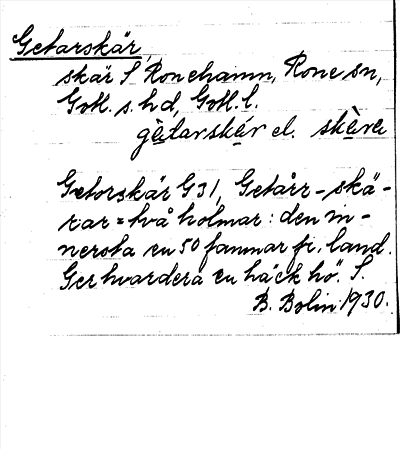 Getarskär,
skär S Ronehamn, Rone sn,
Gotl. s. hd, Gotl. l.
gètarskér el. skèra
Getorskär G31, Getårr-skä-
rar = två holmar: den in-
nersta en 50 famnar fr. land.
Ger hvardera en häck hö. S.
B. Bolin 1930.